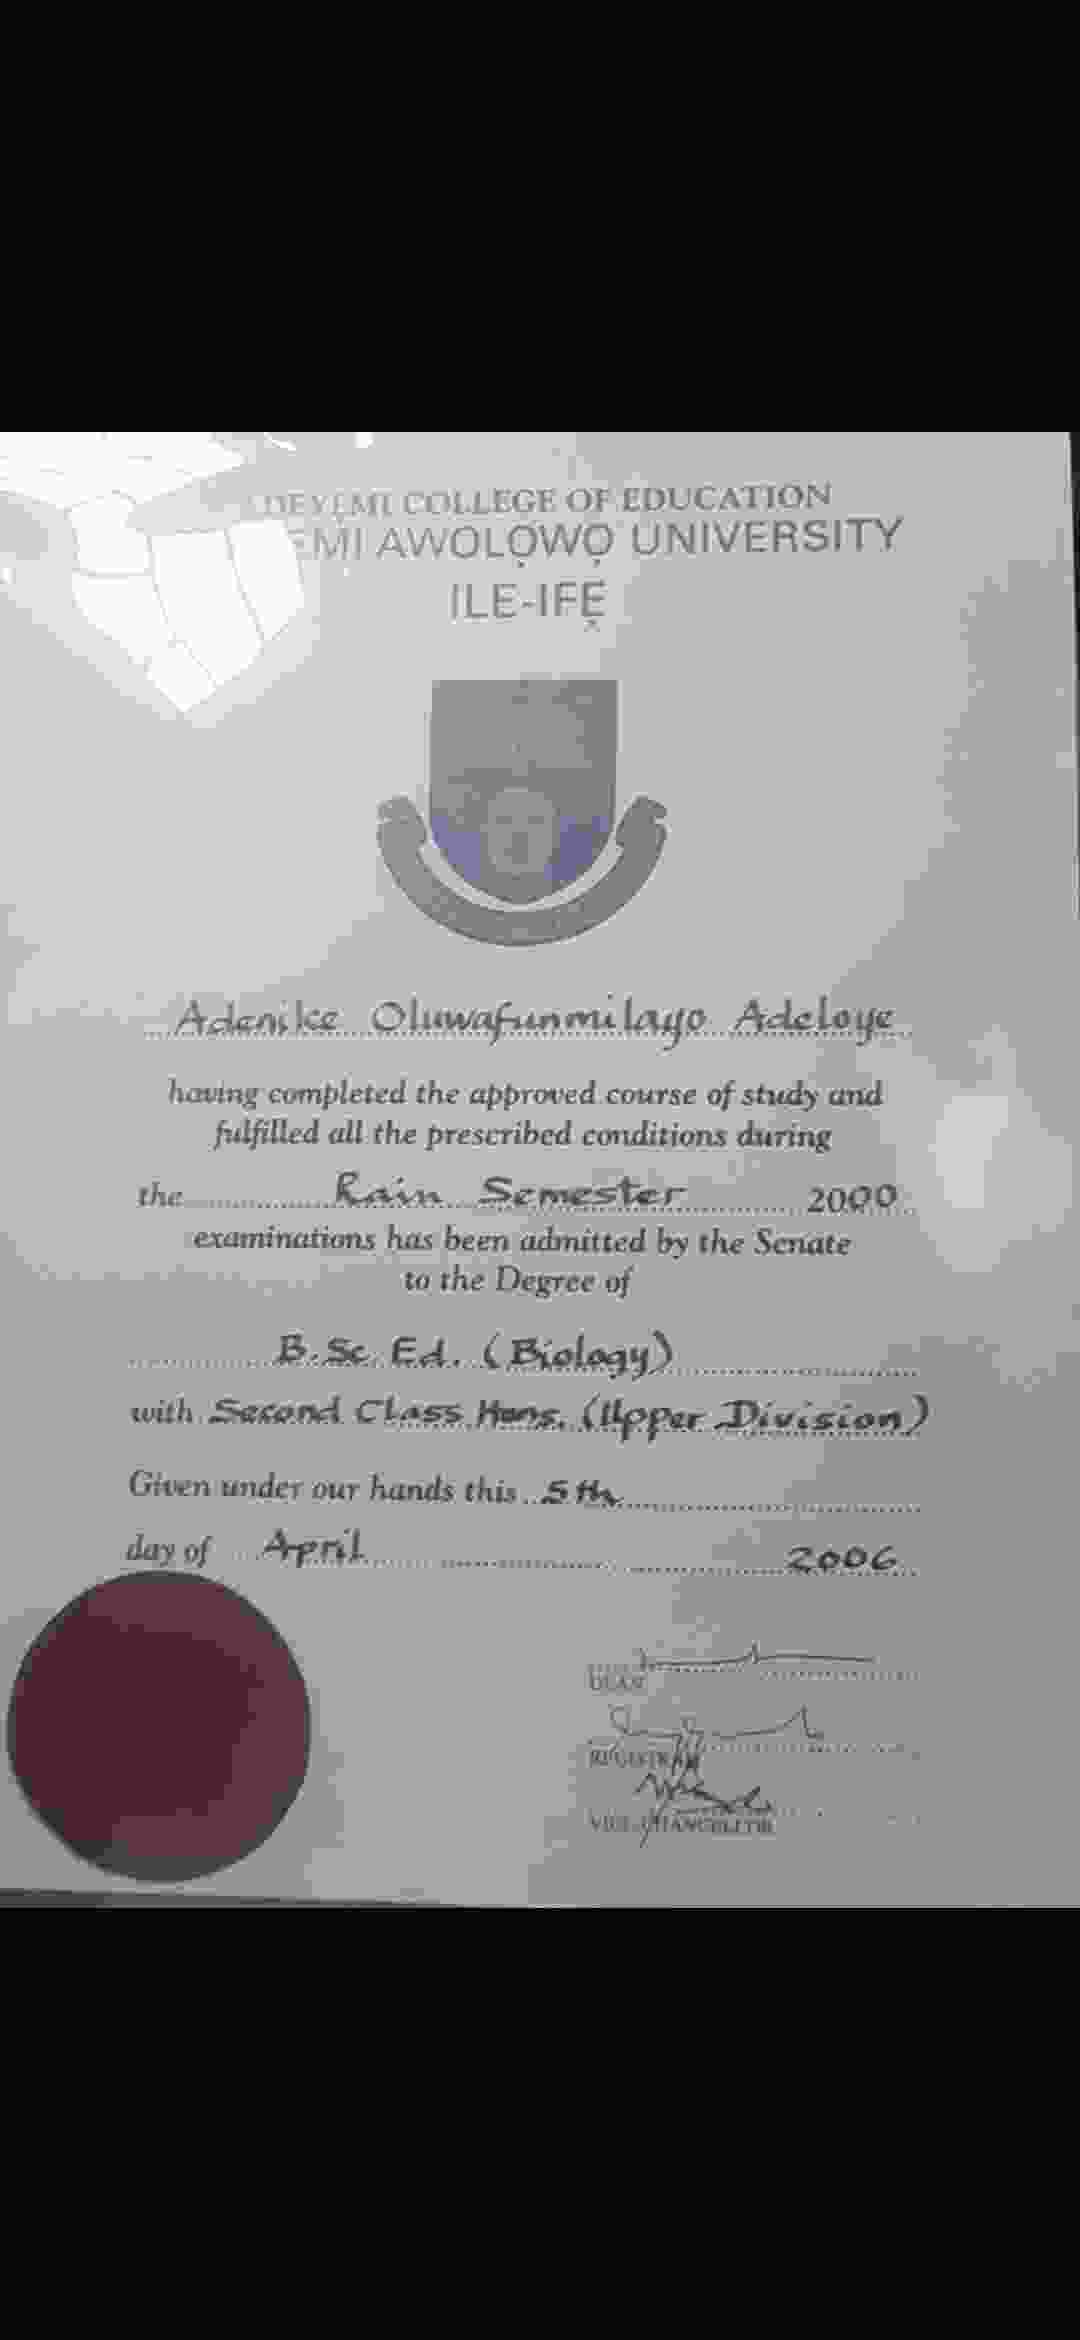 DEYEMI COLLEGE OF EDUCATION
EMI AWOLỌWỌ UNIVERSITY
ILE-IFẸ
Adenike Oluwafunmilayo Adeloye
having completed the approved course of study and
fulfilled all the prescribed conditions during
the Rain Semester 2000
examinations has been admitted by the Senate
to the Degree of
B.Sc. Ed. (Biology)
with Second Class Hons. (Upper Division)
Given under our hands this 5th
day of April 2006
DEAN
REGISTRAR
VICE-CHANCELLOR